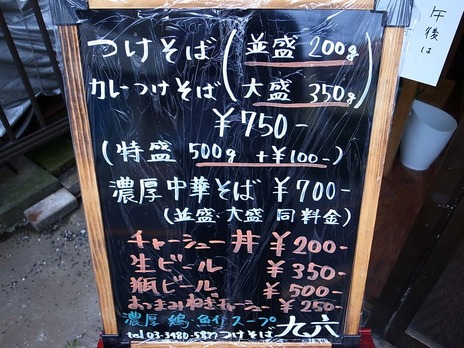 つけそば(並盛 200g
カレーつけそば(大盛 350g
¥750-
(特盛 500g +¥100-)
濃厚中華そば ¥700-
(並盛・大盛 同料金)
チャーシュー丼 ¥200-
生ビール ¥350-
瓶ビール ¥500-
おつまみねぎチャーシュー ¥250-
濃厚鶏・魚介スープ
tel 03-3480-5877 つけそば 九六
午後は